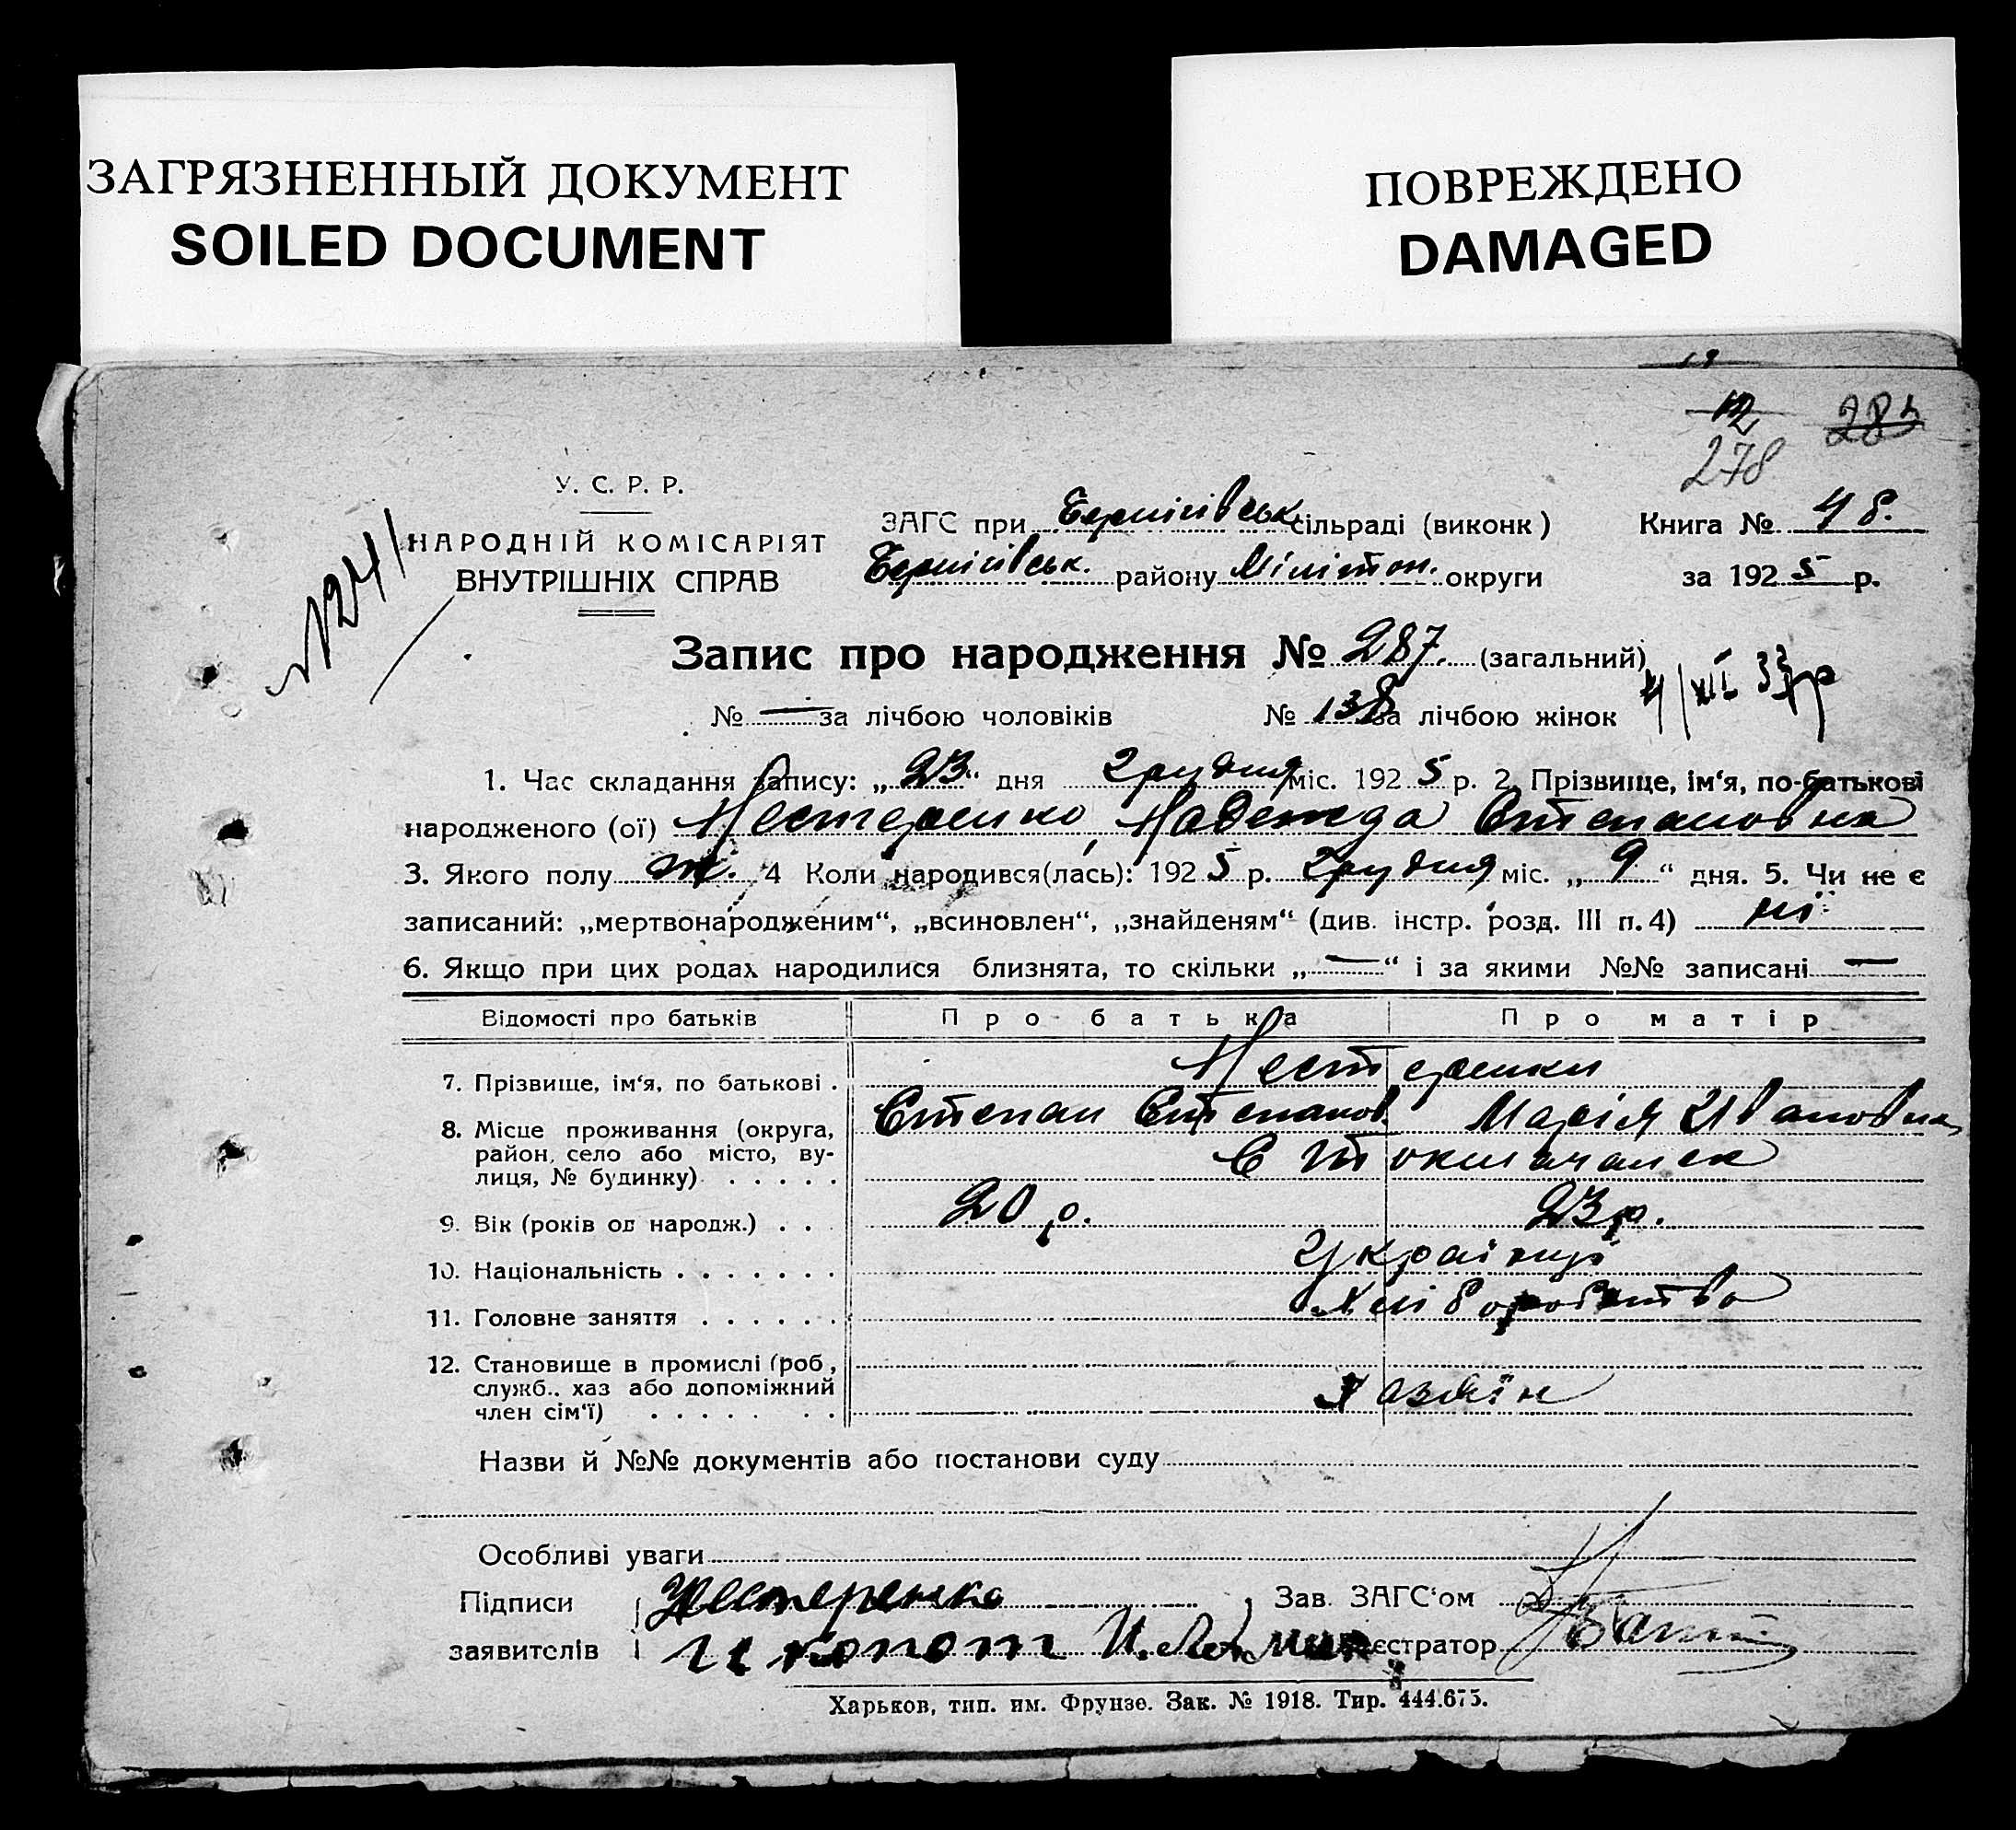 ЗАГРЯЗНЕННЫЙ ДОКУМЕНТ
SOILED DOCUMENT
ПОВРЕЖДЕНО
DAMAGED
19
12 285
278
№241
У. С. Р. Р.
НАРОДНІЙ КОМІСАРІЯТ
ВНУТРІШНІХ СПРАВ
ЗАГС при Берніівськ сільраді (виконк)
Берніівськ. району Мілітоп. округи
Книга № 48.
за 1925 р.
Запис про народження № 287. (загальний)
№ — за лічбою чоловіків № 138 за лічбою жінок
4/XII 33 р
1. Час складання запису: „23“ дня грудня міс. 1925 р. 2. Прізвище, ім‘я, по-батькові
народженого (ої) Нестеренко, Надежда Степановна
3. Якого полу ж. 4 Коли народився(лась): 1925 р. грудня міс. „9“ дня. 5. Чи не є
записаний: „мертвонародженим“, „всиновлен“, „знайденям“ (див. інстр. розд. III п. 4) ні
6. Якщо при цих родах народилися близнята, то скільки „—“ і за якими №№ записані —
Відомості про батьків Про батька Про матір
7. Прізвище, ім‘я, по батькові . Нестеренки
Степан Степанов. Марія Ивановна
8. Місце проживання (округа,
район, село або місто, ву-
лиця, № будинку) . . . . . С Токмачанск
9. Вік (років од народж.) . . . 20 р. 23 р.
10. Національність . . . . . . . Українці
11. Головне заняття . . . . . . Хліборобство
12. Становище в промислі (роб.,
служб., хаз або допоміжний
член сім‘ї) . . . . . . . Хазяін
Назви й №№ документів або постанови суду
Особливі уваги
Підписи Нестеренко Зав. ЗАГС‘ом
заявителів Реєстратор
Харьков, тип. им. Фрунзе. Зак. № 1918. Тир. 444.675.